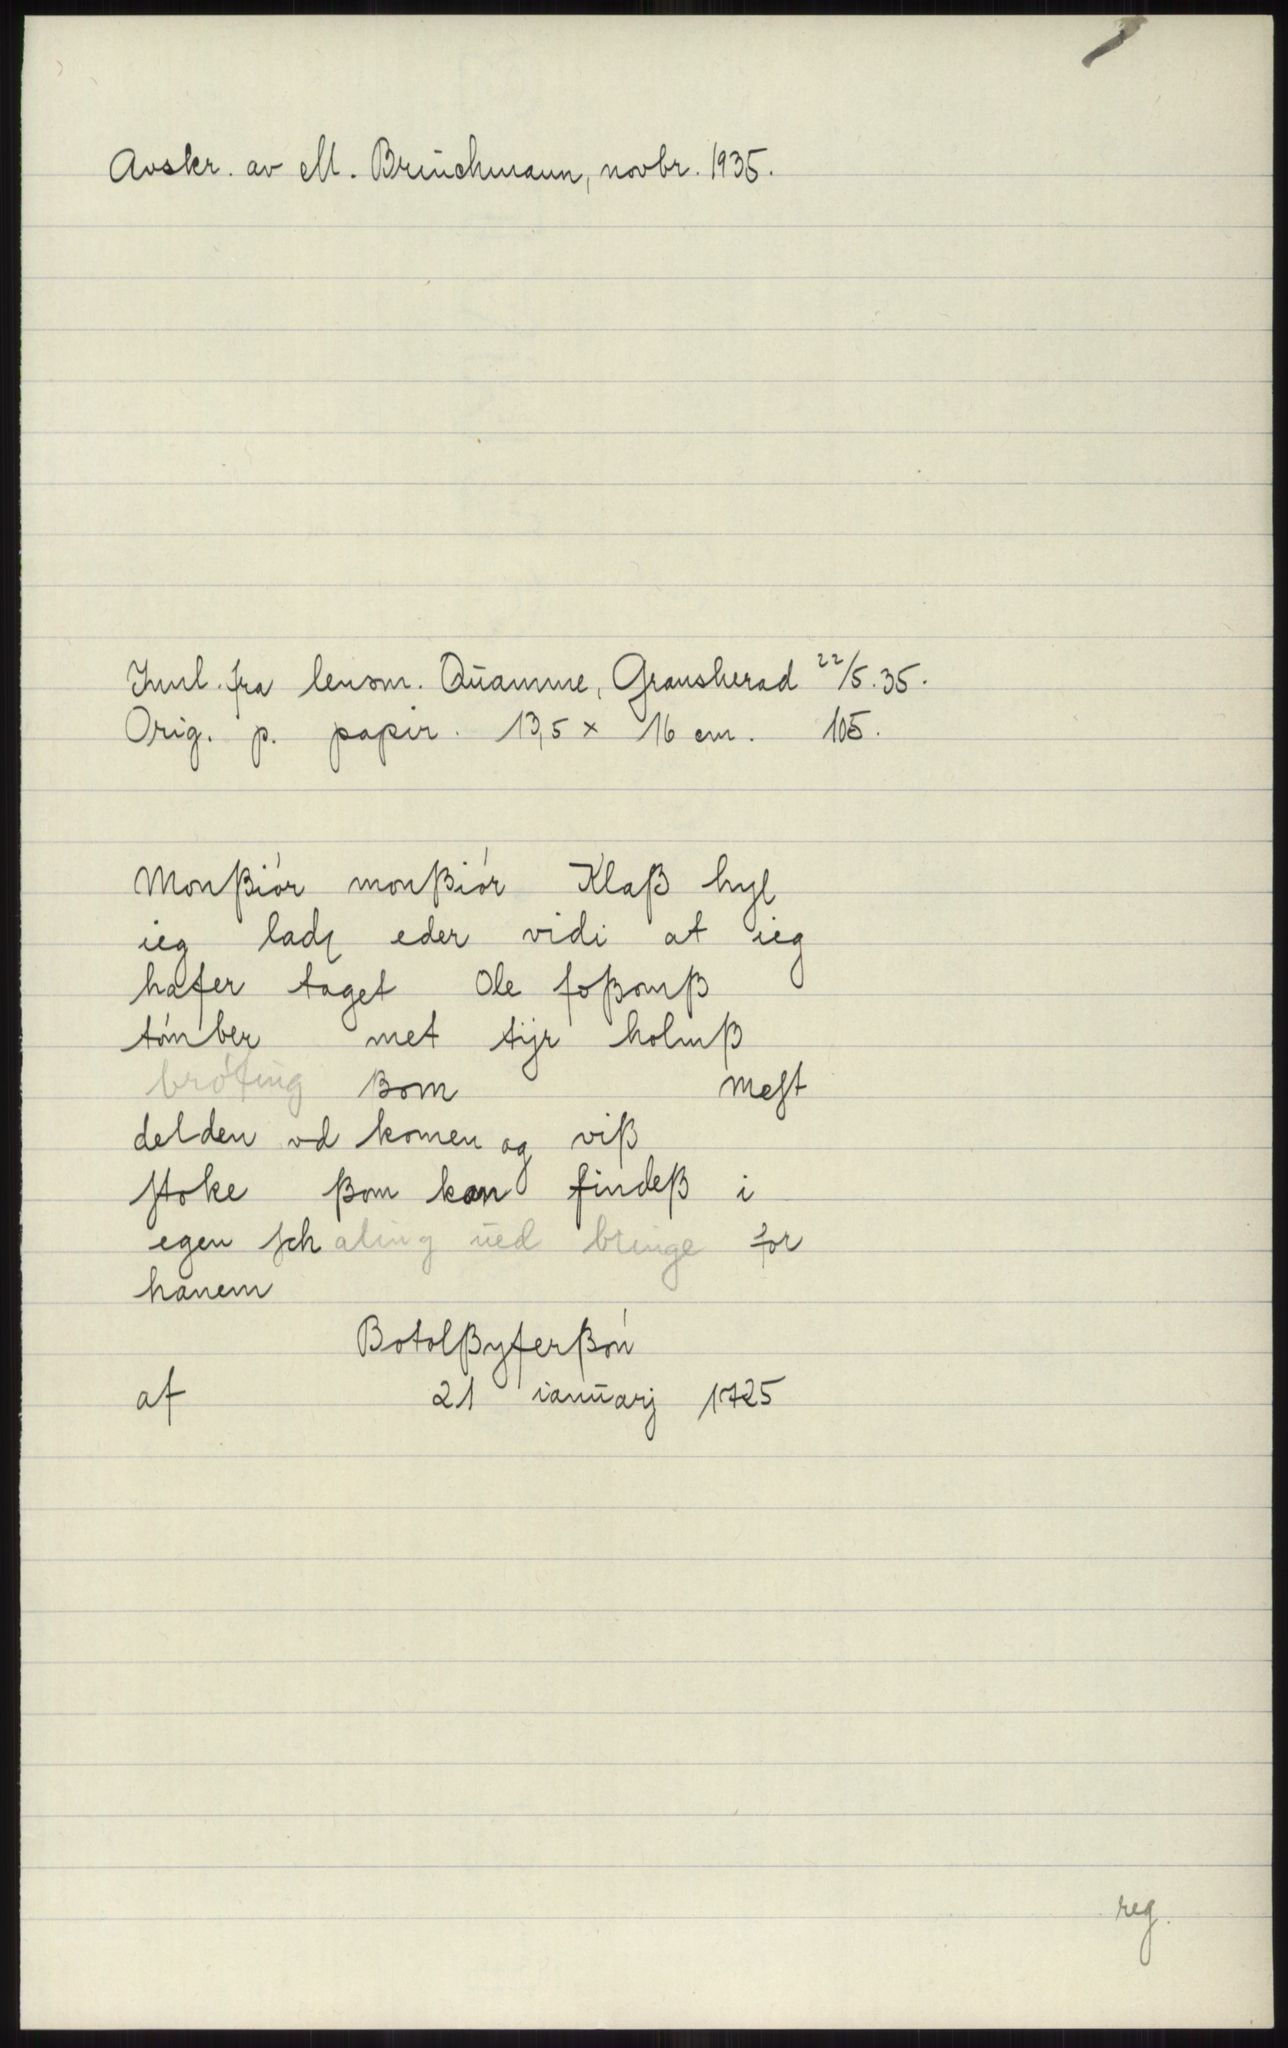 Avskr. av M. Brinchmann, novbr. 1935.
Innl. fra lensm. Quamme, Gransherad 22/5.35.
Orig. p. papir. 13,5 x 16 cm. 105.
Monßiór monßiór Klaß hyl
ieg ladę eder vidi at ieg
hafer taget Ole foßomß
tómber met tÿr holmß
brótinğ ßom meſt
delden vd komen og viß
ſtoke ßom kan findeß i
egen ſchaling ŭed bringe for
hanem
Botolßyferßón
af 21 ianŭarj 1725
reg.